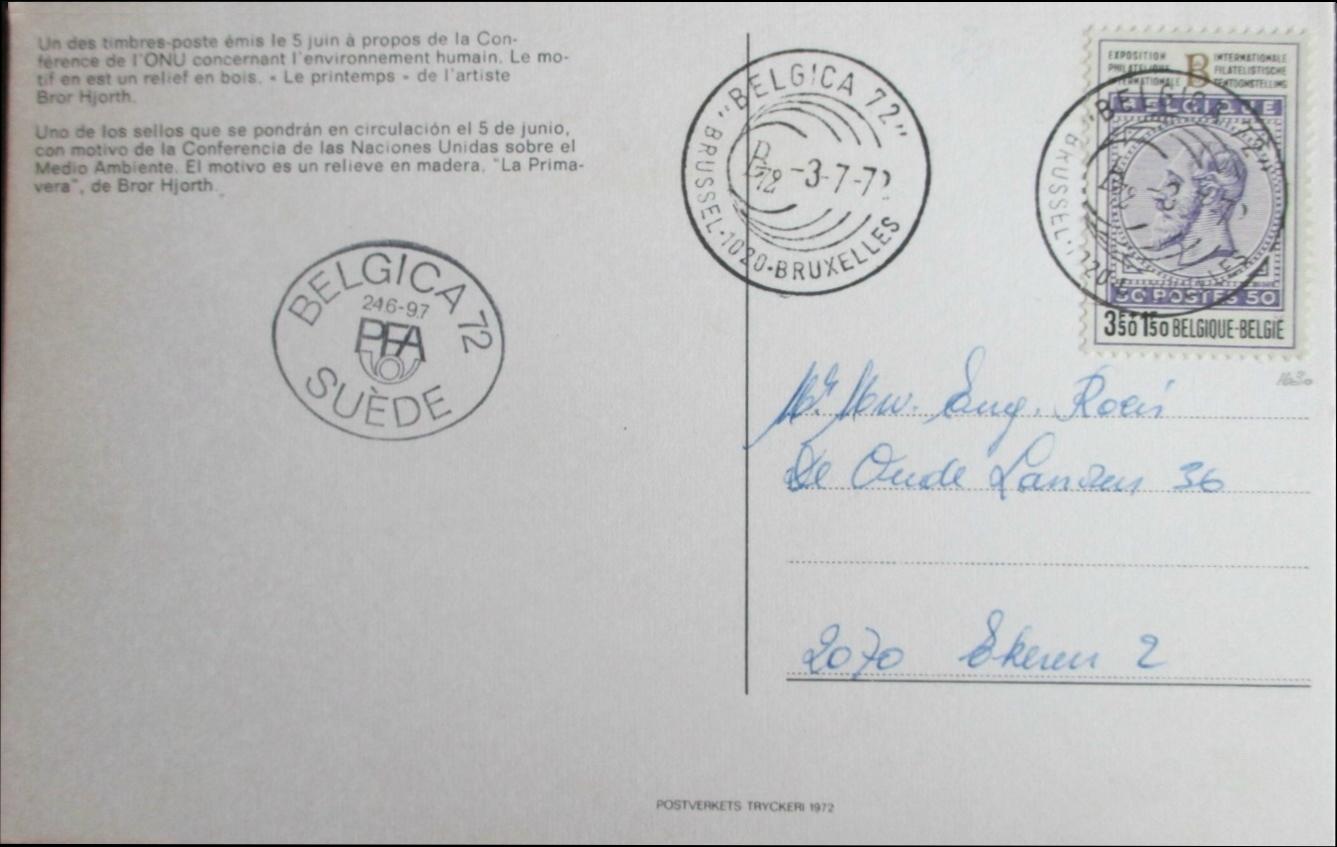 Un des timbres-poste émis le 5 juin à propos de la Con-
férence de l'ONU concernant l'environnement humain. Le mo-
tif en est un relief en bois. « Le printemps » de l'artiste
Bror Hjorth.
Uno de los sellos que se pondrán en circulación el 5 de junio,
con motivo de la Conferencia de las Naciones Unidas sobre el
Medio Ambiente. El motivo es un relieve en madera. "La Prima-
vera", de Bror Hjorth.
BELGICA 72
24.6-9.7
PFA
SUÈDE
"BELGICA 72"
B72 -3-7-72
BRUSSEL-1020-BRUXELLES
EXPOSITION
PHILATELIQUE
INTERNATIONALE
B
INTERNATIONALE
FILATELISTISCHE
TENTOONSTELLING
BELGIQUE
"BELGICA 72"
BRUSSEL
50 POSTES 50
350+150 BELGIQUE-BELGIË
Eug.
De Oude Landen 36
2070 Ekeren 2
POSTVERKETS TRYCKERI 1972